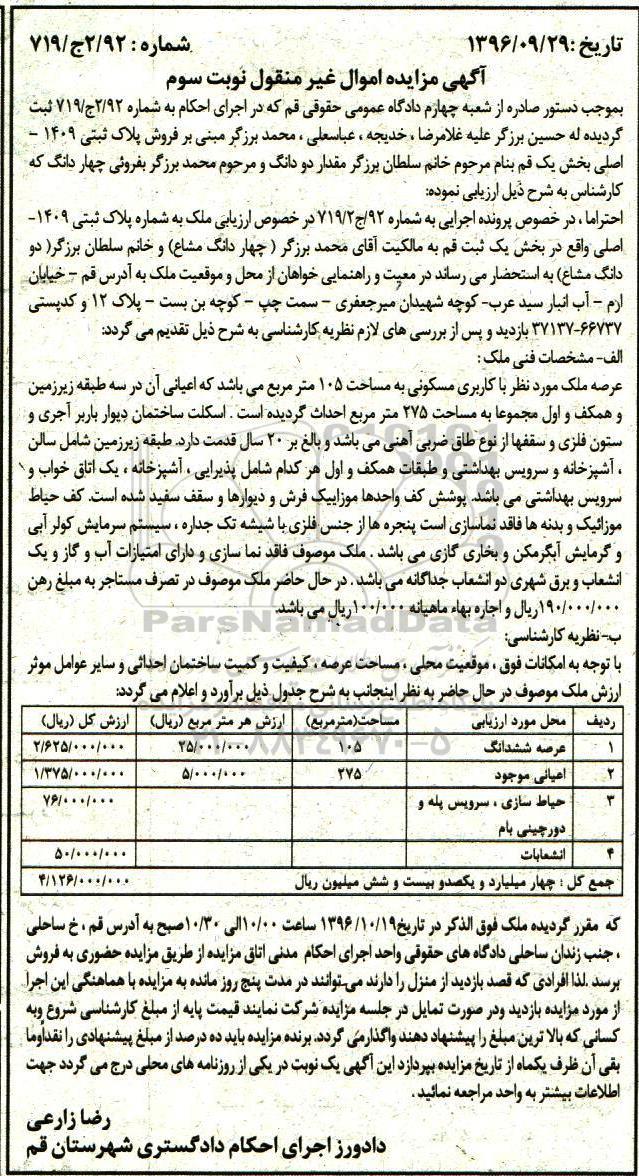 تاریخ :۱۳۹۶/۰۹/۲۹ شماره : ۲/۹۲ج/۷۱۹
آگهی مزایده اموال غیر منقول نوبت سوم
بموجب دستور صادره از شعبه چهارم دادگاه عمومی حقوقی قم که در اجرای احکام به شماره ۲/۹۲ج/۷۱۹ ثبت
گردیده له حسین برزگر علیه غلامرضا ، خدیجه ، عباسعلی ، محمد برزگر مبنی بر فروش پلاک ثبتی ۱۴۰۹ –
اصلی بخش یک قم بنام مرحوم خانم سلطان برزگر مقدار دو دانگ و مرحوم محمد برزگر بفروئی چهار دانگ که
کارشناس به شرح ذیل ارزیابی نموده:
احتراما ، در خصوص پرونده اجرایی به شماره ۹۲/ج۷۱۹/۲ در خصوص ارزیابی ملک به شماره پلاک ثبتی ۱۴۰۹-
اصلی واقع در بخش یک ثبت قم به مالکیت آقای محمد برزگر ( چهار دانگ مشاع) و خانم سلطان برزگر( دو
دانگ مشاع) به استحضار می رساند در معیت و راهنمایی خواهان از محل و موقعیت ملک به آدرس قم – خیابان
ارم – آب انبار سید عرب- کوچه شهیدان میرجعفری – سمت چپ – کوچه بن بست – پلاک ۱۲ و کدپستی
۳۷۱۳۷-۶۶۷۳۷ بازدید و پس از بررسی های لازم نظریه کارشناسی به شرح ذیل تقدیم می گردد:
الف- مشخصات فنی ملک :
عرصه ملک مورد نظر با کاربری مسکونی به مساحت ۱۰۵ متر مربع می باشد که اعیانی آن در سه طبقه زیرزمین
و همکف و اول مجموعا به مساحت ۲۷۵ متر مربع احداث گردیده است . اسکلت ساختمان دیوار باربر آجری و
ستون فلزی و سقفها از نوع طاق ضربی آهنی می باشد و بالغ بر ۲۰ سال قدمت دارد. طبقه زیرزمین شامل سالن
، آشپزخانه و سرویس بهداشتی و طبقات همکف و اول هر کدام شامل پذیرایی ، آشپزخانه ، یک اتاق خواب و
سرویس بهداشتی می باشد. پوشش کف واحدها موزاییک فرش و دیوارها و سقف سفید شده است. کف حیاط
موزائیک و بدنه ها فاقد نماسازی است پنجره ها از جنس فلزی با شیشه تک جداره ، سیستم سرمایش کولر آبی
و گرمایش آبگرمکن و بخاری گازی می باشد . ملک موصوف فاقد نما سازی و دارای امتیازات آب و گاز و یک
انشعاب و برق شهری دو انشعاب جداگانه می باشد . در حال حاضر ملک موصوف در تصرف مستاجر به مبلغ رهن
۱۹۰/۰۰۰/۰۰۰ریال و اجاره بهاء ماهیانه ۱۰۰/۰۰۰ریال می باشد.
ParsNamadData
ب- نظریه کارشناسی:
با توجه به امکانات فوق ، موقعیت محلی ، مساحت عرصه ، کیفیت و کمیت ساختمان احداثی و سایر عوامل موثر
ارزش ملک موصوف در حال حاضر به نظر اینجانب به شرح جدول ذیل برآورد و اعلام می گردد:
ردیف محل مورد ارزیابی مساحت(مترمربع) ارزش هر متر مربع (ریال) ارزش کل (ریال)
۱ عرصه ششدانگ ۱۰۵ ۲۵/۰۰۰/۰۰۰ ۲/۶۲۵/۰۰۰/۰۰۰
۲ اعیانی موجود ۲۷۵ ۵/۰۰۰/۰۰۰ ۱/۳۷۵/۰۰۰/۰۰۰
۳ حیاط سازی ، سرویس پله و ۷۶/۰۰۰/۰۰۰
دورچینی بام
۴ انشعابات ۵۰/۰۰۰/۰۰۰
جمع کل : چهار میلیارد و یکصدو بیست و شش میلیون ریال ۴/۱۲۶/۰۰۰/۰۰۰
که مقرر گردیده ملک فوق الذکر در تاریخ۱۳۹۶/۱۰/۱۹ ساعت ۱۰/۰۰الی ۱۰/۳۰صبح به آدرس قم ، خ ساحلی
، جنب زندان ساحلی دادگاه های حقوقی واحد اجرای احکام مدنی اتاق مزایده از طریق مزایده حضوری به فروش
برسد .لذا افرادی که قصد بازدید از منزل را دارند می‌توانند در مدت پنج روز مانده به مزایده با هماهنگی این اجرا
از مورد مزایده بازدید ودر صورت تمایل در جلسه مزایده شرکت نمایند قیمت پایه از مبلغ کارشناسی شروع وبه
کسانی که بالا ترین مبلغ را پیشنهاد دهند واگذارمی گردد. برنده مزایده باید ده درصد از مبلغ پیشنهادی را نقدأوما
بقی آن ظرف یکماه از تاریخ مزایده بپردازد این آگهی یک نوبت در یکی از روزنامه های محلی درج می گردد جهت
اطلاعات بیشتر به واحد مراجعه نمائید .
رضا زارعی
دادورز اجرای احکام دادگستری شهرستان قم